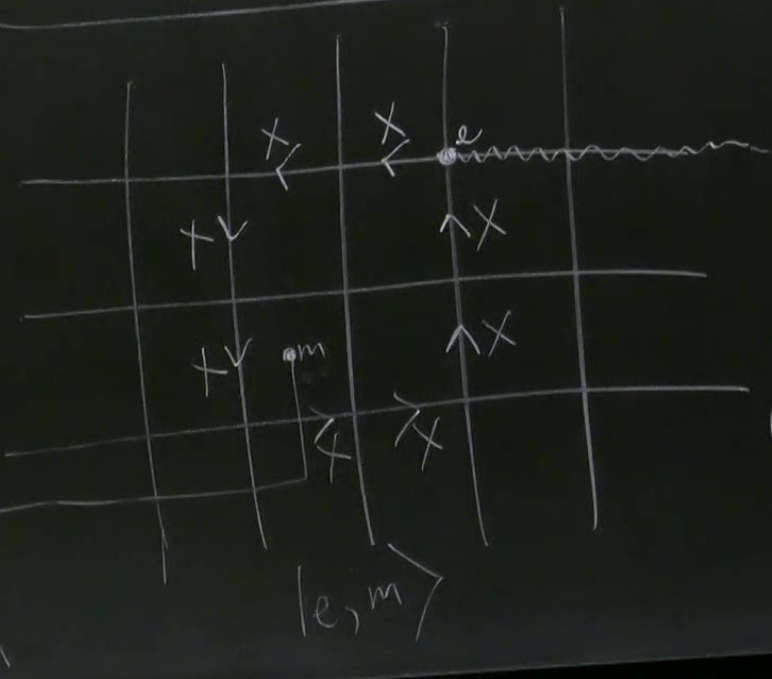 X X e
X X
X m X
X X
|e,m⟩